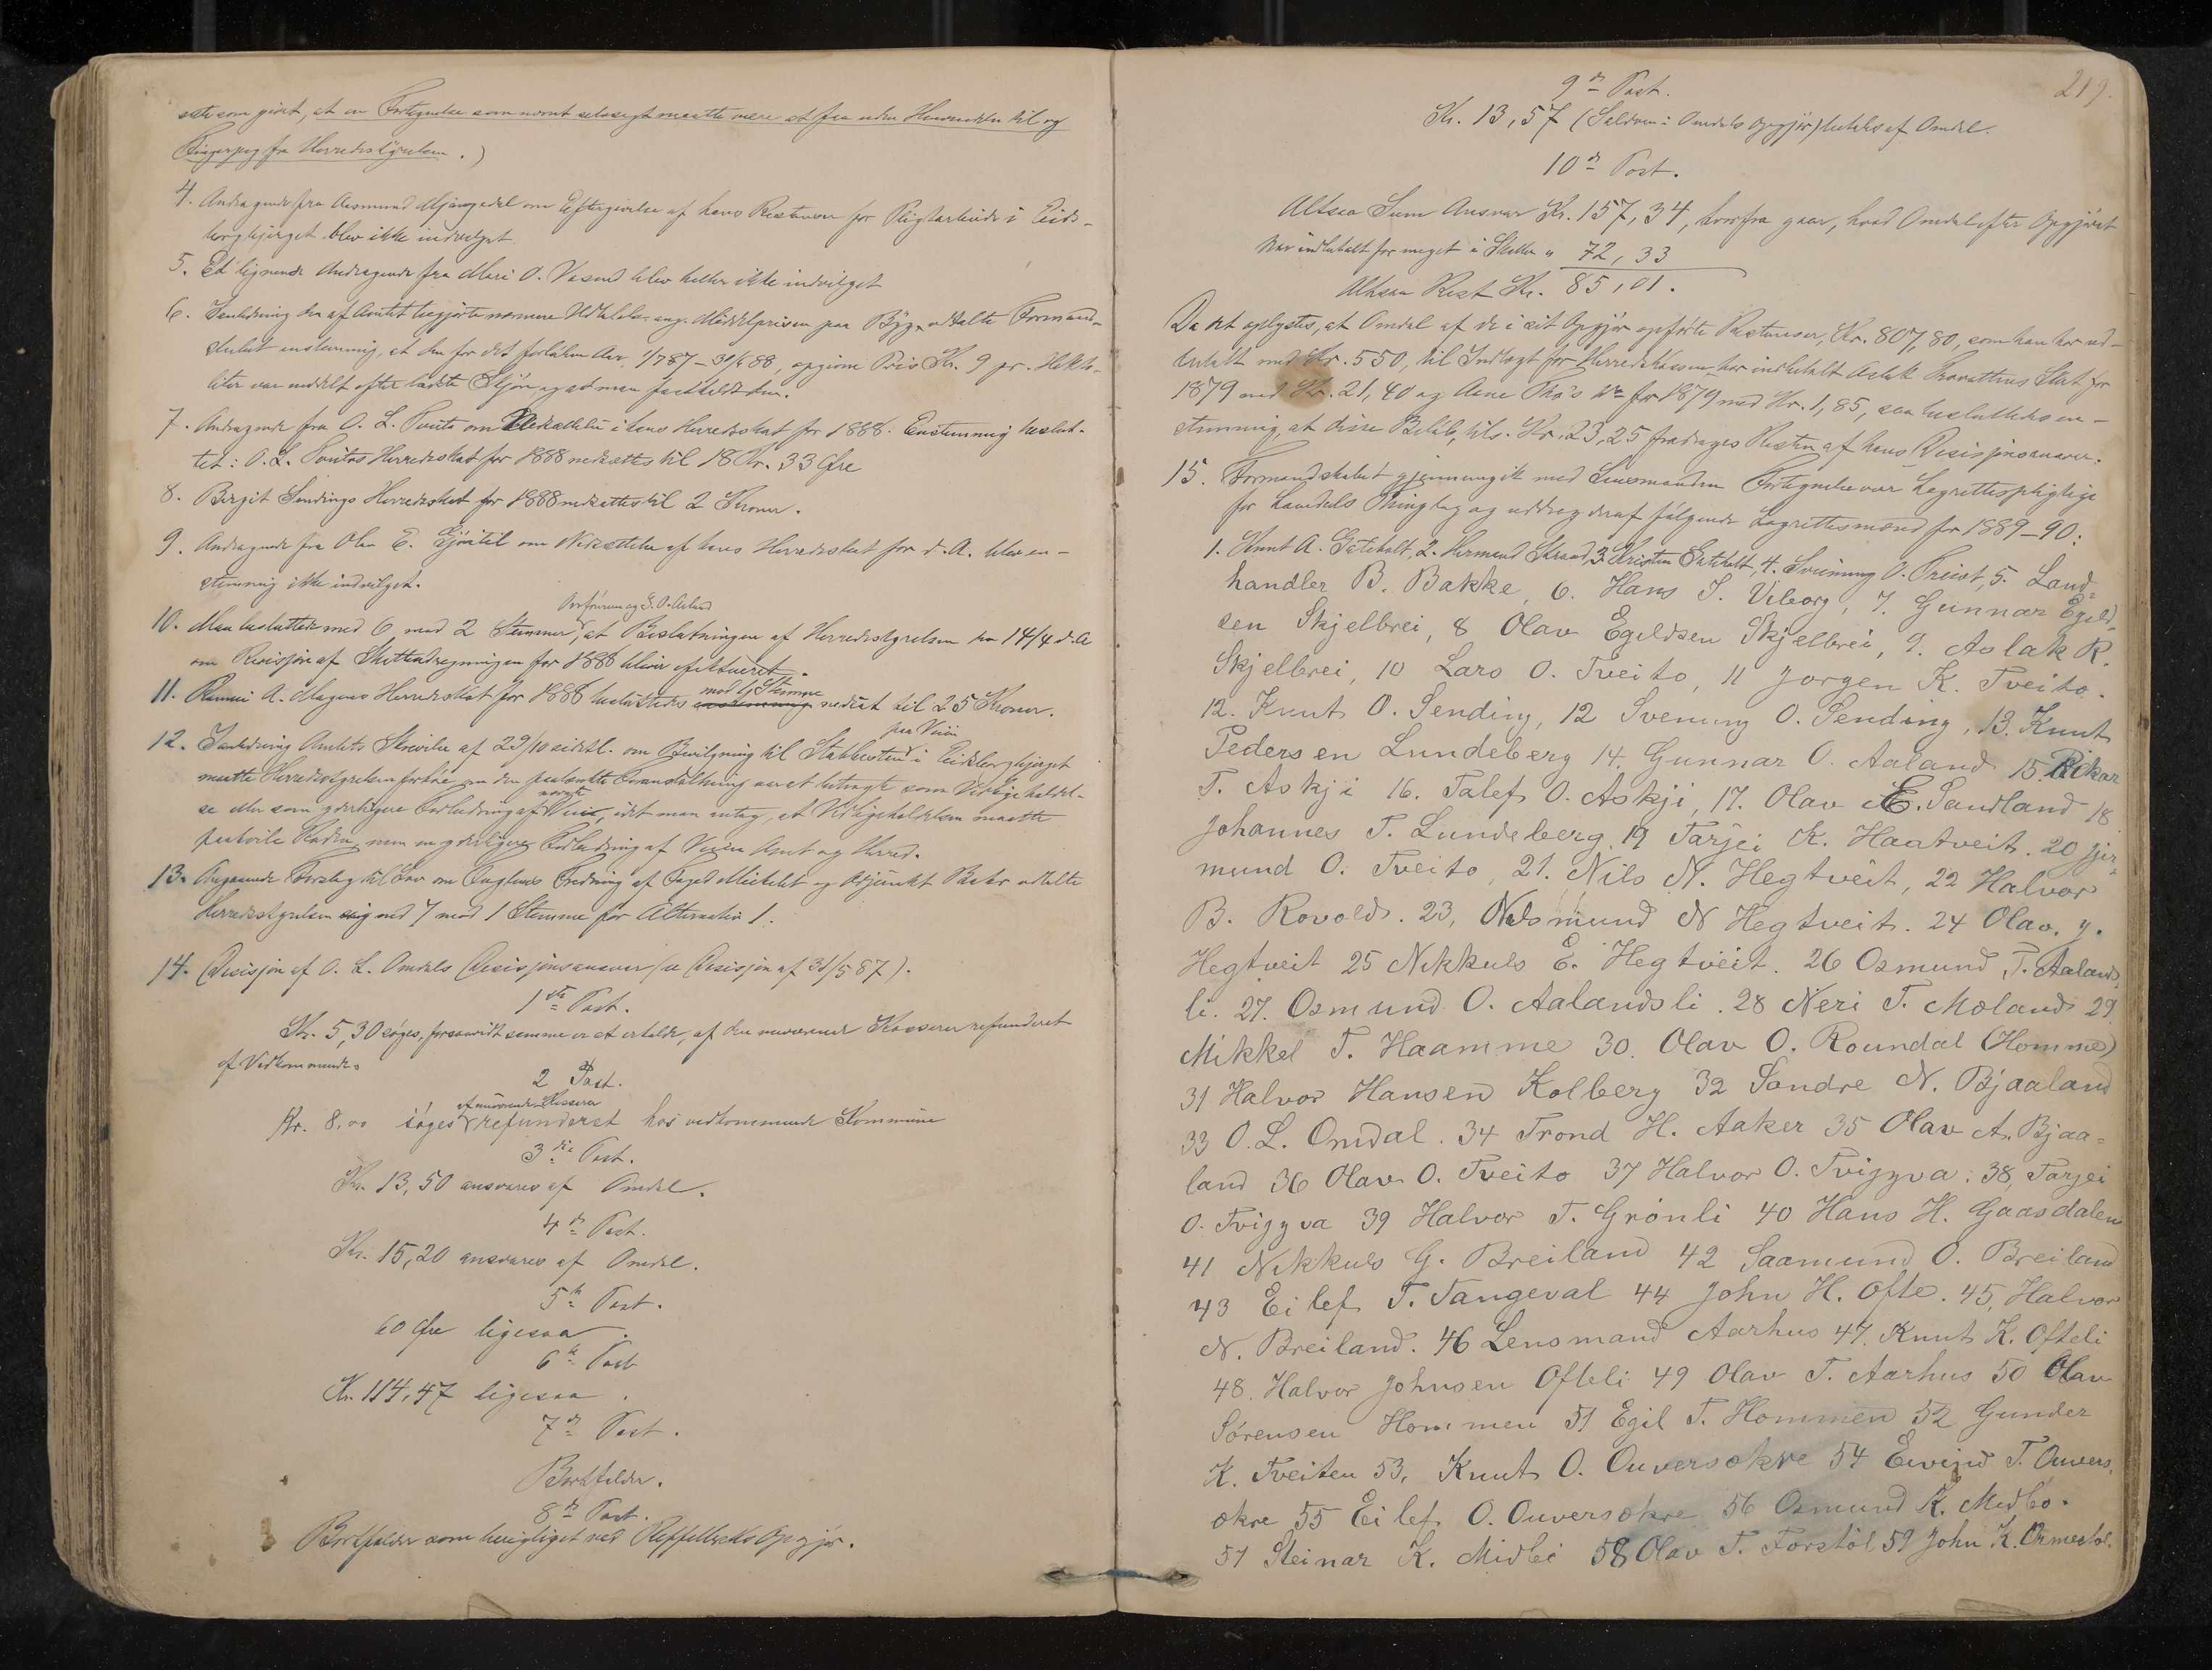 som givet, at en Fortegnelse som nævnt selvsagt maatte være at faa uden Henvendelse til og
Fingerpeg fra Herredsstyrelsen.)
4. Andragende fra Aasmund Mjaugedal om Eftergivelse af hans Restanser for Pligtarbeide i Eids-
borgbjerget blev ikke indvilget.
5. Et lignende Andragende fra Mari O. Vasend blev heller ikke indvilget
6. I anledning den af Amtet begjærte nærmere Udtalelse ang. Middelprisen paa Byg udtalte Formand-
skabet enstemmig, at den for det forløbne Aar, 1/7 87 – 30/6 88, opgivne Pris Kr. 9 pr. Hekto-
liter var meddelt efter bedste Skjøn og at man fastholdt den.
7. Andragende fra O. L. Tveito om Nedsættelse i hans Herredsskat for 1888. Enstemmig beslut-
tet: O. L. Tveitos Herredsskat for 1888 nedsættes til 18 Kr. 33 Øre
8. Birgit Sendings Herredsskat for 1888 nedsættes til 2 Kroner.
9. Andragende fra Olav E. om Nedsættelse af hans Herredsskat for d. A. blev en-
stemmig ikke indvilget.
Ordføreren og G. O. Aaland
10. Man besluttede med 6 mod 2 Stemmer, at Beslutningen af Herredsstyrelsen den 14/4 d. A
om Revisjon af Skatteudregningen for 1888 bliver efektueret.
mod 1 Stemme
11. A. Herredsskat for 1888 besluttedes enstemmig nedsat til 25 Kroner.
paa Veien
12. I anledning Amtets Skrivelse af 29/10 sidstl. om Bevilgning til Stabbesten i Eidsborgbjerget
maatte Herredsstyrelsen den paatænkte Foranstaltning var at betragte som Vedligeholdel-
nævnte
se eller som yderligere Forbedring af Vei, idet man antog, at Vedligeholdelsen maatte
paahvile Roden, men en yderligere Forbedring af Veien Amt og Herred.
13. Angaaende Forslag til Lov om Fuglenes Fredning af Foged Mickelet og Adjunkt Barth udtalte
Herredsstyrelsen sig med 7 mod 1 Stemme for Alternativ 1.
14. Decisjon af O. L. Omdals Decisjonsansvar (se Decisjon af 31/5 87).
1ste Post.
Kr. 5,30 søges, forsaavidt samme er at erholde, af den nuværende Kasserer refunderet
af Vedkommende.
2 Post.
af nuværende Kasserer
Kr. 8.00 søges refunderet hos vedkommende Kommune
3die Post.
Kr. 13,50 ansvares af Omdal.
4de Post.
Kr. 15,20 ansvares af Omdal.
5te Post.
60 Øre ligesaa.
6te Post
Kr. 114,47 ligesaa.
7de Post.
Bortfalder.
8de Post.
Bortfalder som berigtiget ved Opgjør.
219.
9de Post.
Kr. 13,57 (Saldoen i Omdals Opgjør) betales af Omdal.
10de Post.
Altsaa Sum Ansvar Kr. 157,34, hvorfra gaar, hvad Omdal efter Opgjøret
har indbetalt for meget i Skatter „ 72,33
Altsaa Rest Kr. 85,01.
Da det oplystes, at Omdal af de i sit Opgjør opførte Restanser, Kr. 807,80, som han har ud-
betalt med Kr. 550, til Indtægt for Herredskassen har indbetalt Aslak Skat for
1879 med Kr. 21,40 og Aane for 1879 med Kr. 1,85, saa besluttedes en-
stemmig, at disse Beløb, tils. Kr. 23,25 fradrages Resten af hans Decisjonsansvar.
15. Formandskabet gjennemgik med Lensmanden Fortegnelse over Lagrettespligtige
for Laurdals Thinglag og uddrog deraf følgende Lagrettesmænd for 1889–90:
1. Knut A. Gatekolt, 2. Hermund Strand, 3. Kristen Gatekolt, 4. Sveinung O. Treist, 5. Land-
handler B. Bakke, 6. Hans J. Viborg, 7. Gunnar Egild-
sen Skjelbrei, 8 Olav Egeldsen Skjelbrei, 9. Aslak R.
Skjelbrei, 10 Lars O. Tveito, 11 Jørgen K. Tveito.
12. Knut O. Sending, 12 Svenung O. Sending, 13. Knut
Pedersen Lundeberg 14. Gunnar O. Aaland 15. Rikar
T. Askji 16. Talef O. Askji, 17. Olav E. Sandland 18
Johannes T. Lundeberg, 19 Tarjei K. Haatveit. 20 Jer-
mund O. Tveito, 21. Nils N. Hegtveit, 22 Halvor
B. Rovold. 23, Nilsmund N Hegtveit. 24 Olav. J.
Hegtveit 25 Nikkuls E. Hegtveit. 26 Osmund T. Aalands
li. 27. Osmund O. Aalandsli. 28 Neri T. Moland 29
Mikkel T. Haamme 30. Olav O. Roundal (Homme)
31 Halvor Hansen Kolberg 32 Sondre N. Bjaaland
33 O. L. Omdal. 34 Trond H. Aaker 35 Olav A. Bjaa-
land 36 Olav O. Tveito 37 Halvor O. Tvigyva. 38, Tarjei
O. Tvigyva 39 Halvor T. Grönli 40 Hans H. Gaasdalen
41 Nikkuls G. Breiland 42 Saamund O. Breiland
43 Eilef T. Tangeval 44 John H. Ofte. 45, Halvor
N. Breiland. 46 Lensmand Aarhus 47. Knut K. Ofteli
48. Halvor Johnsen Ofteli 49 Olav T. Aarhus 50 Olav
Sørensen Hommen 51 Egil T. Hommen 52 Gunder
K. Tveiten 53, Knut O. Ouversokre 54 Eivind T. Ouvers-
okre 55 Eilef O. Ouversokre 56 Osmund K. Midbö.
57 Steinar K. Midbö 58 Olav T. Forstöl 59 John K. Ormestöl.